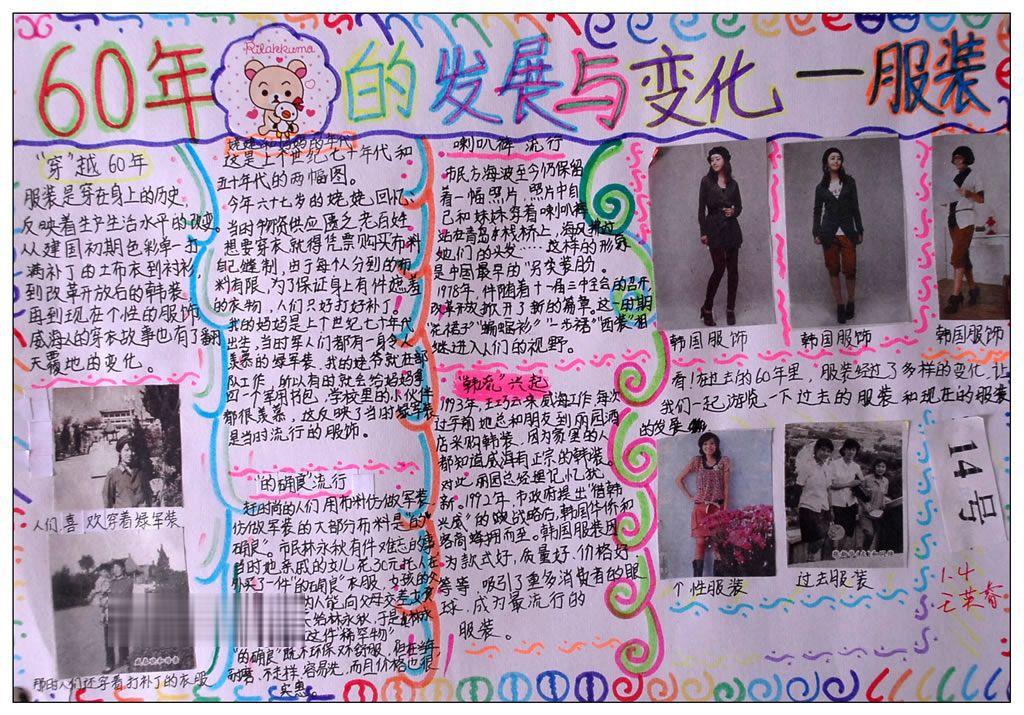 60年的发展与变化—服装
Rilakkuma
"穿"越60年
服装是穿在身上的历史,
反映着生产生活水平的改变。
从建国初期色彩单一打
满补丁由土布衣到衬衫,
到改革开放后的韩装,
再到现在个性的服饰
威海人的穿衣故事也有了翻
天覆地的变化。
人们喜欢穿着绿军装
那时人们还穿着打补丁的衣服
姥姥和妈妈的年代
这是上个世纪七十年代和
五十年代的两幅图。
今年六十七岁的姥姥回忆,
当时物资供应匮乏,老百姓
想要穿衣就得凭票购买布料
自己缝制,由于每个人分到的布
料有限,为了保证身上有件遮羞
的衣物,人们只好打好补丁!
我的妈妈是上个世纪七十年代
出生,当时穿人们都有一身令人
羡慕的绿军装。我的姥爷就在部
队工作,所以有的就会给妈妈拿
回一个军用书包,学校里的小伙伴
都很羡慕,这反映了当时绿军装
是当时流行的服饰。
"的确良"流行
赶时尚的人们用布料仿做军装
仿做军装的大部分布料是"的
确良"。市民林永秋有件难忘的事
当时她亲戚的女儿花30元托人在
外买了一件"的确良"衣服,女孩的
的人能向父母交差
给林永秋,于是林永
这件"稀罕物"
"的确良"既不环保不舒服,但在当年
耐磨,不走样,容易洗,而且价格也很
实惠。
喇叭裤流行
市民方海波至今仍保留
着一幅照片,照片中自
己和妹妹穿着喇叭裤
站在青岛木栈桥上,海风
她们的头发……这样的形象
是中国最早的"另类装扮。
1978年,伴随着十一届三中全会的召开,
改革开放掀开了新的篇章。这一时期
"花裙子""蝙蝠衫""一步裙""西装"相
继进入人们的视野。
"韩流"兴起
1993年,王巧云来威海工作,每次
过年前她总和朋友到丽园酒
店采购韩装。因为家里的人
都知道威海有正宗的韩装。
对此,丽园总经理记忆犹
新。1992年,市政府提出"借韩
兴威"的战略后,韩国华侨和
客商蜂拥而至。韩国服装因
为款式好,质量好,价格好
等等,吸引了更多消费者的眼
球,成为最流行的
服装。
韩国服饰
韩国服饰
韩国服饰
看!在过去的60年里,服装经过了多样的变化,让
我们一起游览一下过去的服装和现在的服装
的改变
个性服装
过去服装
14号
1.4